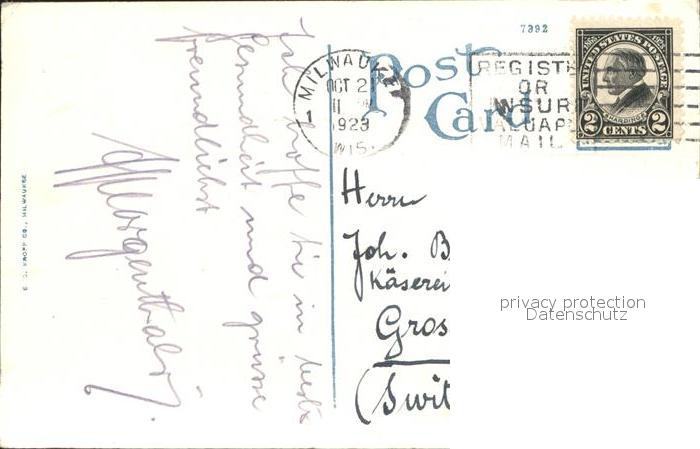 7392
Post
Card
MILWAUKEE
OCT 2
11
1
1923
WIS.
REGIST
OR
INSUR
VALUAB
MAIL
1865 1923
UNITED STATES POSTAGE
HARDING
2 CENTS 2
Ich hoffe Sie in bester
Gesundheit und grüsse
freundlichst
Morgenthaler
Herrn
Joh. B
Käserei
Gros
(Swit
privacy protection
Datenschutz
E. C. KROPP CO., MILWAUKEE